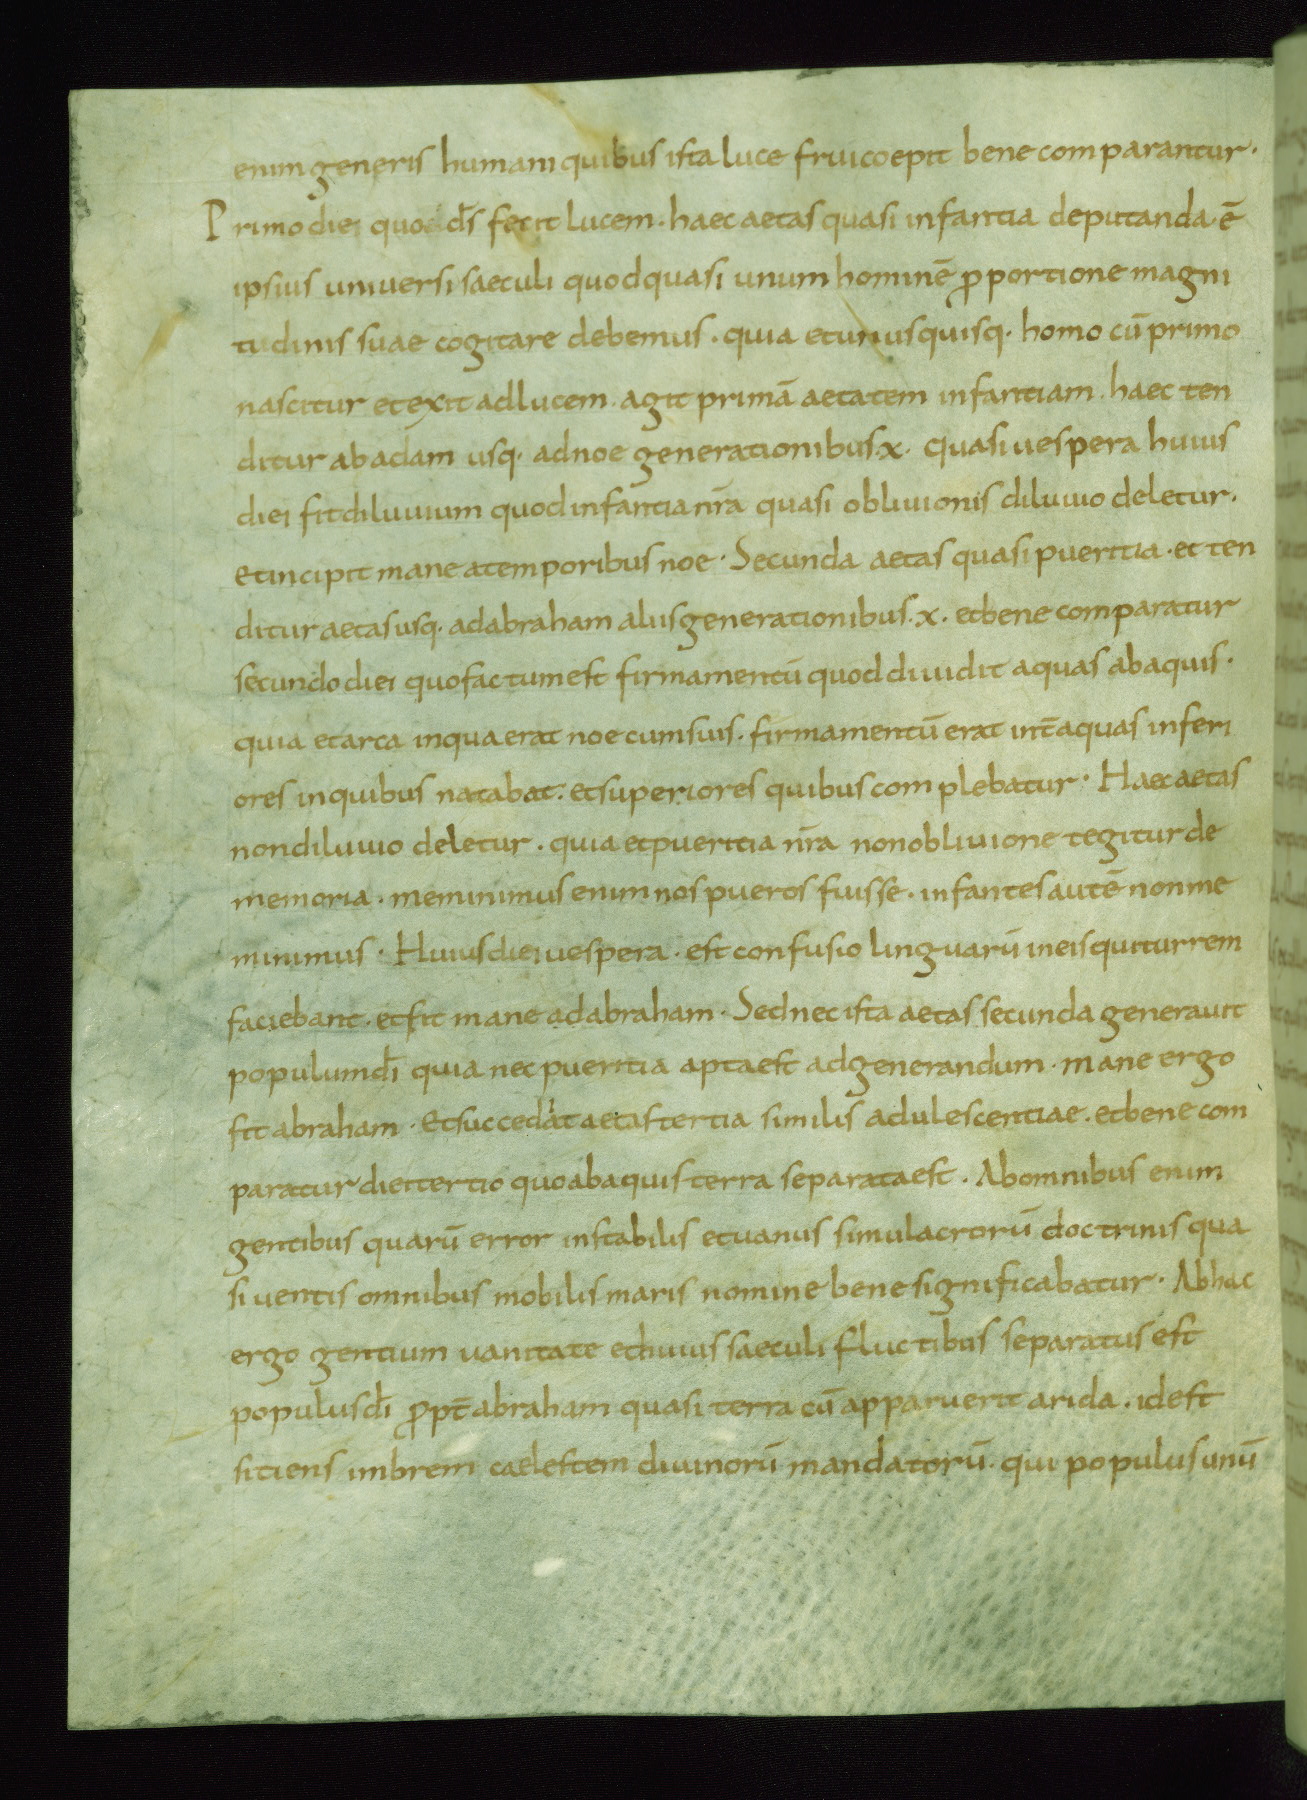 enim generis humani quibus ista luce frui coepit bene comparantur.
Primo diei quod d̄s fecit lucem. haec aetas quasi infantia deputanda ē
ipsius universi saeculi quod quasi unum hominē ꝓportione magni
tudinis suae cogitare debemus. quia et unusquisq. homo cū primo
nascitur et exit ad lucem. agit primā aetatem infantiam. haec ten
ditur ab adam usq. ad noe generationibus .x. quasi vespera huius
diei fit diluuium quod infantia nr̄a quasi oblivionis diluuio deletur.
et incipit mane a temporibus noe. Secunda aetas quasi pueritia. et ten
ditur aetas usq. ad abraham aliis generationibus .x. et bene comparatur
secundo diei quo factum est firmamentū quod diuidit aquas ab aquis.
quia et arca in qua erat noe cum suis. firmamentū erat int̄ aquas inferi
ores in quibus natabat. et superiores quibus complebatur. Haec aetas
non diluuio deletur. quia et pueritia nr̄a non obliuione tegitur de
memoria. meminimus enim nos pueros fuisse. infantes autē non me
minimus. Huius diei uespera. est confusio linguarū in eis qui turrem
faciebant. et fit mane ad abraham. Sed nec ista aetas secunda generauit
populum d̄i quia nec pueritia apta est ad generandum. mane ergo
fit abraham. Et succedit aetas tertia similis adulescentiae. et bene com
paratur diei tertio quo ab aquis terra separata est. Ab omnibus enim
gentibus quarū error instabilis et uanus simulacrorū doctrinis qua
si uentis omnibus mobilis maris nomine bene significabatur. Ab hac
ergo gentium uanitate et huius saeculi fluctibus separatus est
populus d̄i ꝓpt̄ abraham quasi terra cū apparuerit arida. id est
sitiens imbrem caelestem diuinorū mandatorū. qui populus unū